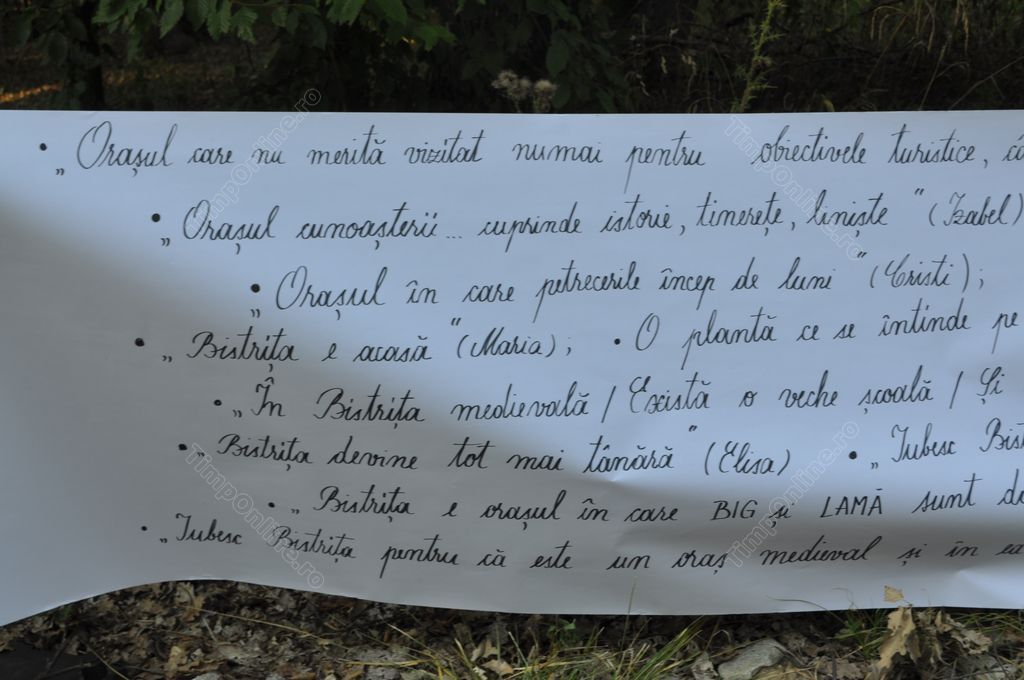 • „Orașul care nu merită vizitat numai pentru obiectivele turistice,
• „Orașul cunoașterii... cuprinde istorie, tinerețe, liniște" (Izabel)
• „Orașul în care petrecerile încep de luni" (Cristi);
• „Bistrița e acasă" (Maria); • O plantă ce se întinde pe
• „În Bistrița medievală / Există o veche școală / Și
• „Bistrița devine tot mai tânără" (Elisa) • „Iubesc
• „Bistrița e orașul în care BIG și LAMĂ sunt
• „Iubesc Bistrița pentru că este un oraș medieval și în
TimpOnline.ro
TimpOnline.ro
TimpOnline.ro
TimpOnline.ro